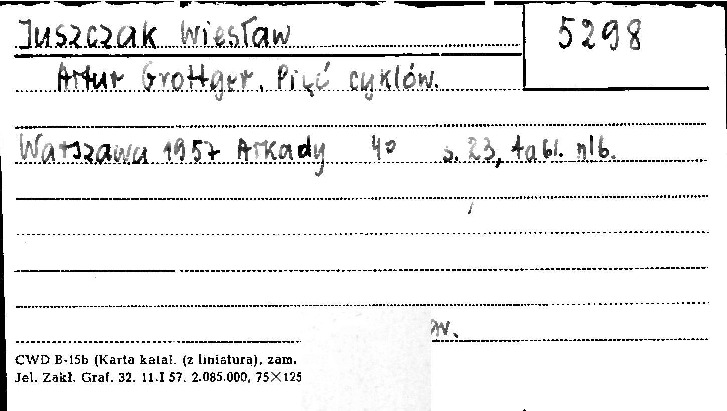 Juszczak Wiesław
5298
Artur Grottger. Pięć cyklów.
Warszawa 1957 Arkady 4º s. 23, tabl. nlb.
CWD B-15b (Karta katal. (z liniaturą), zam.
Jel. Zakł. Graf. 32. 11.I 57. 2.085.000, 75×125